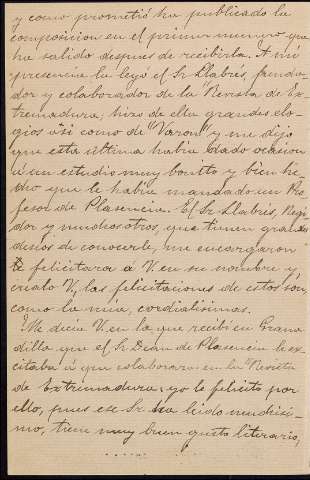 y como prometió ha publicado la
composicion en el primer numero que
ha salido despues de recibirla. A mi
presencia la leyó el Sr Llabrés, funda-
dor y colaborador de la Revista de Ex-
tremadura, hizo de ella grandes elo-
gios asi como de "Varon" y me dijo
que esta última habia dado ocasion
á un estudio muy bonito y bien he-
cho que le habia mandado un Pro-
fesor de Plasencia. El Sr Llabrés,
y muchos otros, que tienen grandes
deseos de conocerle, me encargaron
le felicitara á V. en su nombre y
créalo V., las felicitaciones de estos son,
como la mia, cordialisimas.
Me decia V. en la que recibi en Grana-
dilla que el Sr Dean de Plasencia le ex-
citaba á que colaborara en la "Revista
de Extremadura: yo le felicito por
ello, pues ese Sr ha leido muchisi-
mo, tiene muy buen gusto literario,